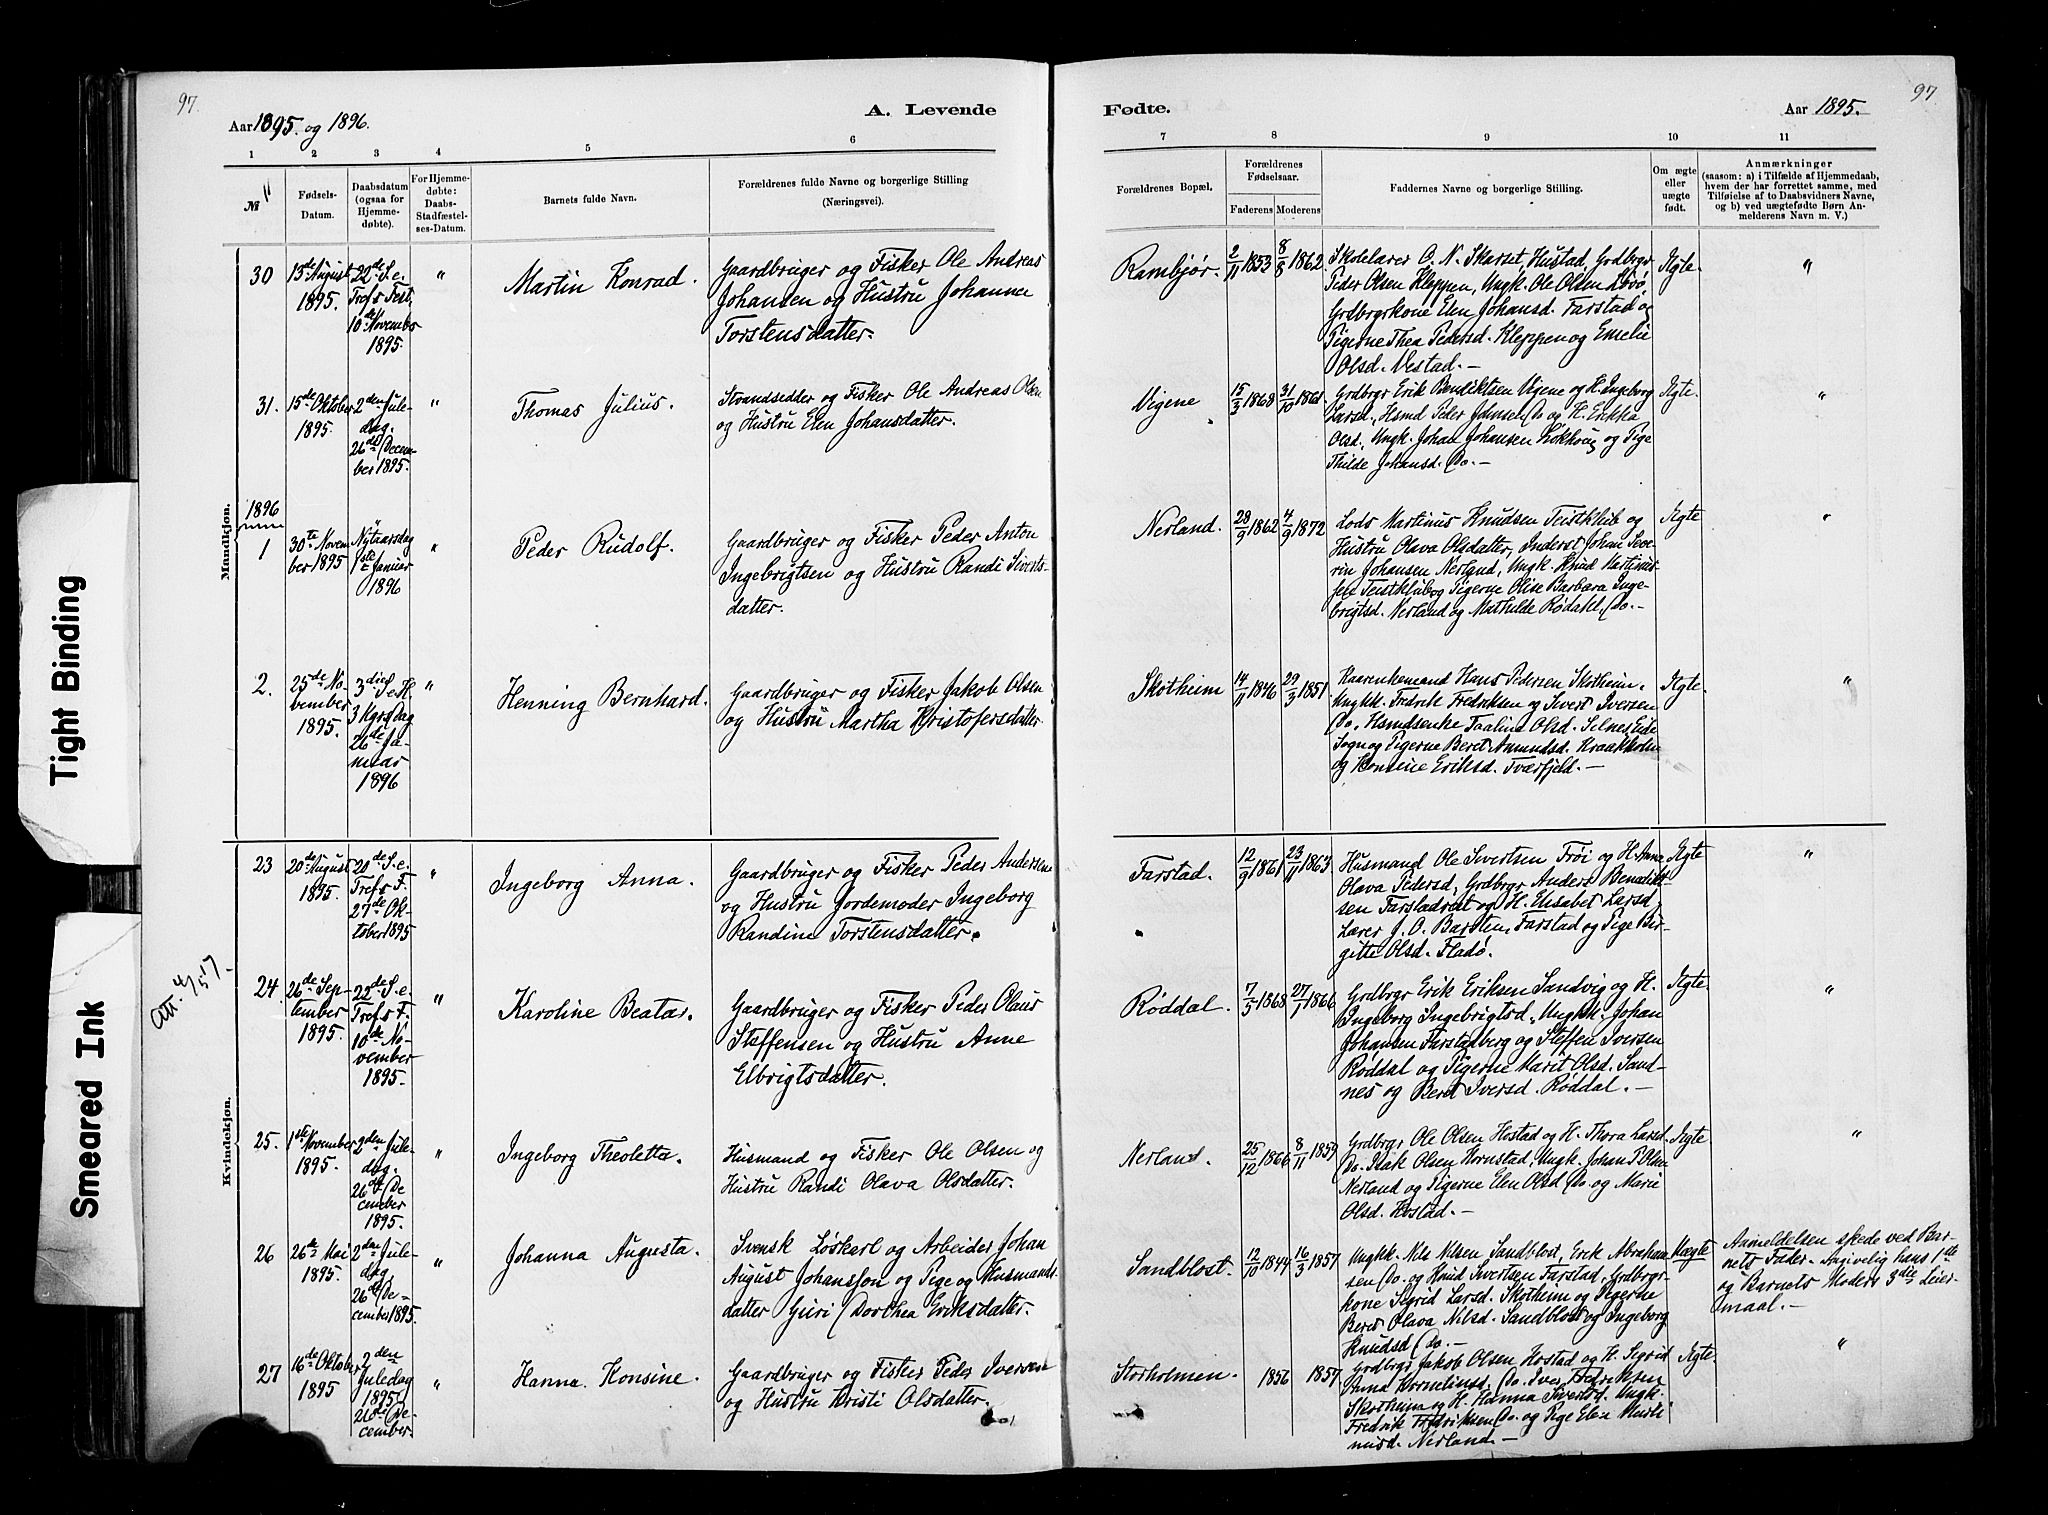 97.
Aar 1895. og 1896.
A. Levende
1 2 3 4 5 6
№
Fødsels-Datum.
Daabsdatum (ogsaa for Hjemmedøbte).
For Hjemmedøbte: Daabs-Stadfæstelses-Datum.
Barnets fulde Navn.
Forældrenes fulde Navne og borgerlige Stilling
(Næringsvei).
Mandkjøn.
30
13de August
1895.
22de S. e.
Tref's Fest,
10de Novembo
1895.
"
Martin Konrad.
Gaardbruger og Fisker Ole Andreas
Johansen og Hustru Johanna
Torstensdatter.
31.
15de Oktober
1895.
2den Jule-
dag.
26de Decem-
ber 1895.
"
Thomas Julius.
Strandsedder og Fisker Ole Andreas Olsen
og Hustru Elen Johansdatter.
1896
1
30te Novem
ber 1895
Nytaarsdag
1ste Januar
1896
"
Peder Rudolf.
Gaardbruger og Fisker Peder Anton
Ingebrigtsen og Hustru Randi Siverts-
datter.
2.
25de No-
vember
1895.
3die S. e. H.
3 Kgrs Dag
26de Ja-
nuar
1896
"
Henning Bernhard.
Gaardbruger og Fisker Jakob Olsen
og Hustru Martha Kristofersdatter.
Kvindekjøn.
23
20de August
1895.
20de S. e.
Tref's F.
27de Ok-
tober 1895
"
Ingeborg Anna.
Gaardbruger og Fisker Peder Andersen
og Hustru Jordemoder Ingeborg
Randine Torstensdatter.
Att. 4/5 17
24.
26de Sep-
tember
1895.
22de S. e.
Tref's F.
10de No-
vember
1895.
"
Karoline Beatar.
Gaardbruger og Fisker Peder Olaus
Steffensen og Hustru Anne
Elbrigtsdatter.
25.
1ste November
1895.
2den Jule-
dag.
26de De-
cember
1895.
"
Ingeborg Theoletta.
Husmand og Fisker Ole Olsen og
Hustru Randi Olava Olsdatter.
26
26de Mai
1895.
2den Jule-
dag,
26de De-
cember 1895.
"
Johanna Augusta.
Svensk Løskarl og Arbeider Johan
August Johansson og Pige og Husmands-
datter Guri Dorthea Eriksdatter.
27
16de Oktober
1895
2den
Juledag
1895
26de De-
cember.
"
Hanna Konsine.
Gaardbruger og Fisker Peder Iversen
og Hustru Kristi Olsdatter.
97.
Fødte.
Aar 1895.
7 8 9 10 11
Forældrenes Bopæl.
Forældrenes Fødselsaar.
Faderens Moderens
Faddernes Navne og borgerlige Stilling.
Om ægte eller uægte født.
Anmærkninger
(saasom: a) i Tilfælde af Hjemmedaab,
hvem der har forrettet samme, med
Tilføielse af to Daabsvidners Navne,
og b) ved uægtefødte Børn An-
melderens Navn m. V.)
Rambjør.
2/11 1853
8/8 1862
Skolelærer O. N. Skarset, Hustad, Grdbrgr
Peder Olsen Kleppen, Ungk. Ole Olsen Løvø,
Grdbrgrkone Elen Johansd. Farstad og
Pigerne Thea Pedersd. Kleppen og Emelie
Olsd. Nestad.
Ægte.
"
Vigene
15/3 1868
31/10 1861
Grdbrgr Erik Bendiktsen Vigene og H. Ingeborg
Larsd., Hsmd Peder Johnsen Do og H. Erikka
Olsd. Ungk. Johan Johansen Løkhoug og Pige
Thilde Johansd. Do. —
Ægte.
"
Nerland.
28/9 1862
4/9 1872
Lods Martinus Knudsen Teistklub og
Hustru Olava Olsdatter, Inderst Johan Seve-
rin Johansen Nerland, Ungk. Knud Martinus-
sen Teistklub og Pigerne Olise Barbara Inge-
brigtsd. Nerland og Mathilde Rødahl, Do. —
Ægte
"
Skotheim
14/11 1846
29/3 1851
Kaarenkemand Hans Pedersen Skotheim.
Ungkk. Fredrik Fredriksen og Sivert Iversen
Do. Hsmdsenke Taaline Olsd. Selnes, Eide
Sogn og Pigerne Beret Amundsd. Kraakholm
og Konsine Eriksd. Tværfjeld. —
Ægte.
"
Farstad.
12/9 1861
23/11 1863
Husmand Ole Sivertsen Frøi og H. Anna
Olava Pedersd, Grdbrgr Anders Benedikt-
sen Farstadvest og H. Elisabet Larsd,
Lærer J. O. Barsten, Farstad og Pige Bir-
gitte Olsd. Fladø.
Ægte
"
Røddal.
7/5 1868
27/1 1866
Grdbrgr Erik Eriksen Sandvig og H.
Ingeborg Ingebrigtsd, Ungk. Johan
Johansen Farstadberg og Steffen Iversen
Røddal og Pigerne Marit Olsd. Sand-
nes og Beret Iversd. Røddal. —
Ægte.
"
Nerland.
25/12 1866
8/11 1859
Grdbrgr Ole Olsen Hostad og H. Thora Larsd.
Do. Isak Olsen Hornstad, Ungk. Johan P. Olsen
Nerland og Pigerne Elen Olsd Do. og Marie
Olsd. Hostad. —
Ægte
"
Sandblost.
12/10 1844
16/3 1857
Ungkk. Nils Nilsen Sandblost, Erik Abraham-
sen Do. og Knud Sivertsen Farstad, Grdbrgr-
kone Segrid Larsd. Skotheim og Pigerne
Beret Olava Nilsd. Sandblost og Ingeborg
Knudsd Do. —
Uægte
Anmeldelsen skede ved Bar-
nets Fader. Angivelig hans 1ste
og Barnets Moders 3die Leier-
maal. —
Storholmen.
1856
1857
Grdbrgr Jakob Olsen Hostad og H. Segrid
Anna Kornelinsd. Do. Iver Fredriksen
Skotheim og H. Hanna Sivertsd. Ungk.
Fredrik Fredriksen Do. og Pige Elen Marti
nusd. Nerland —
Ægte.
"
Tight Binding
Smeared Ink